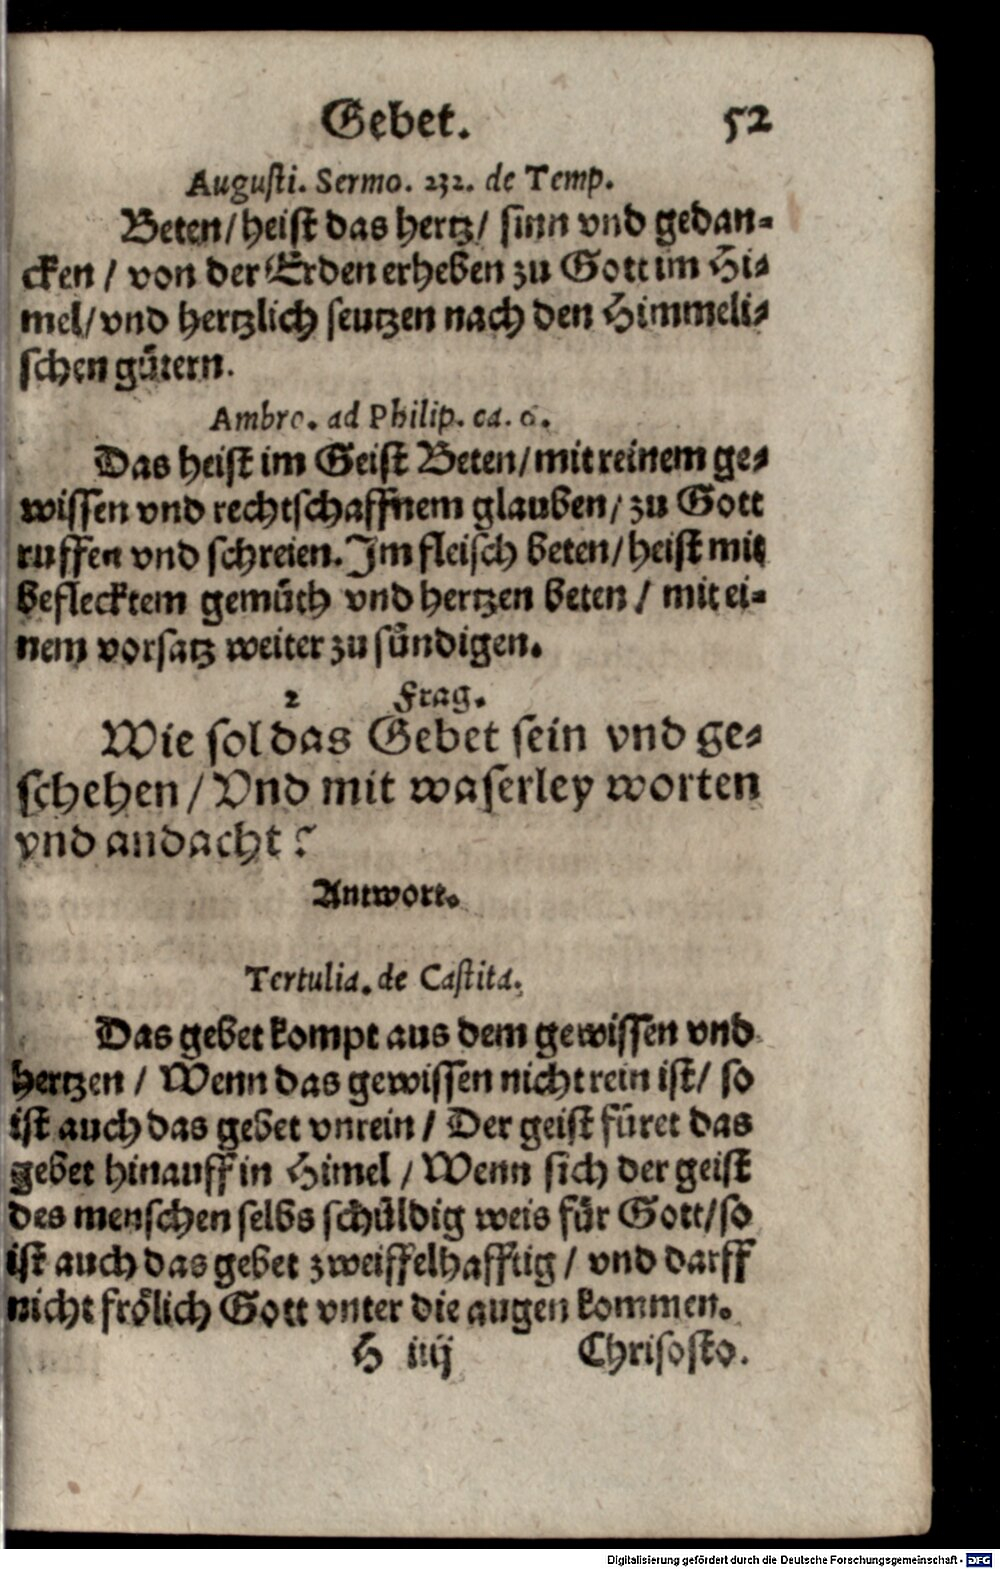 Gebet. 52
Augusti. Sermo. 232. de Temp.
Beten/ heist das hertz/ sinn vnd gedan-
cken / von der Erden erheben zu Gott im Hi-
mel/ vnd hertzlich seutzen nach den Himmeli-
schen gütern.
Ambro. ad Philip. ca. 6.
Das heist im Geist Beten/ mit reinem ge-
wissen vnd rechtschaffnem glauben/ zu Gott
ruffen vnd schreien. Im fleisch beten/ heist mit
beflecktem gemüth vnd hertzen beten / mit ei-
nem vorsatz weiter zu sündigen.
2 Frag.
Wie sol das Gebet sein vnd ge-
schehen / Vnd mit waserley worten
vnd andacht?
Antwort.
Tertulia. de Castita.
Das gebet kompt aus dem gewissen vnd
hertzen / Wenn das gewissen nicht rein ist/ so
ist auch das gebet vnrein / Der geist füret das
gebet hinauff in Himel / Wenn sich der geist
des menschen selbs schüldig weis für Gott/ so
ist auch das gebet zweiffelhafftig / vnd darff
nicht frölich Gott vnter die augen kommen.
H iiij Chrisosto.
Digitalisierung gefördert durch die Deutsche Forschungsgemeinschaft - DFG